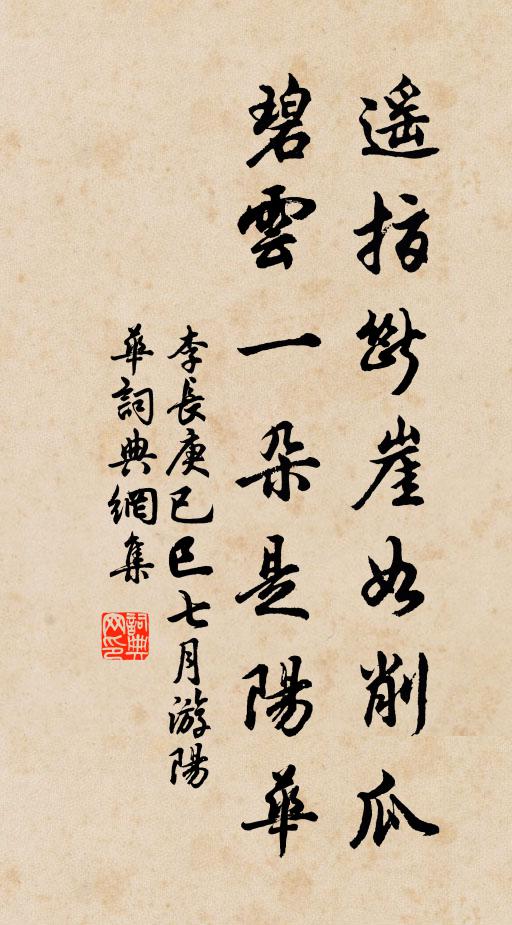 遥指斷崖如削瓜
碧雲一朵是陽華
李長庚己巳七月游陽
華詞典網集
詞典
网印